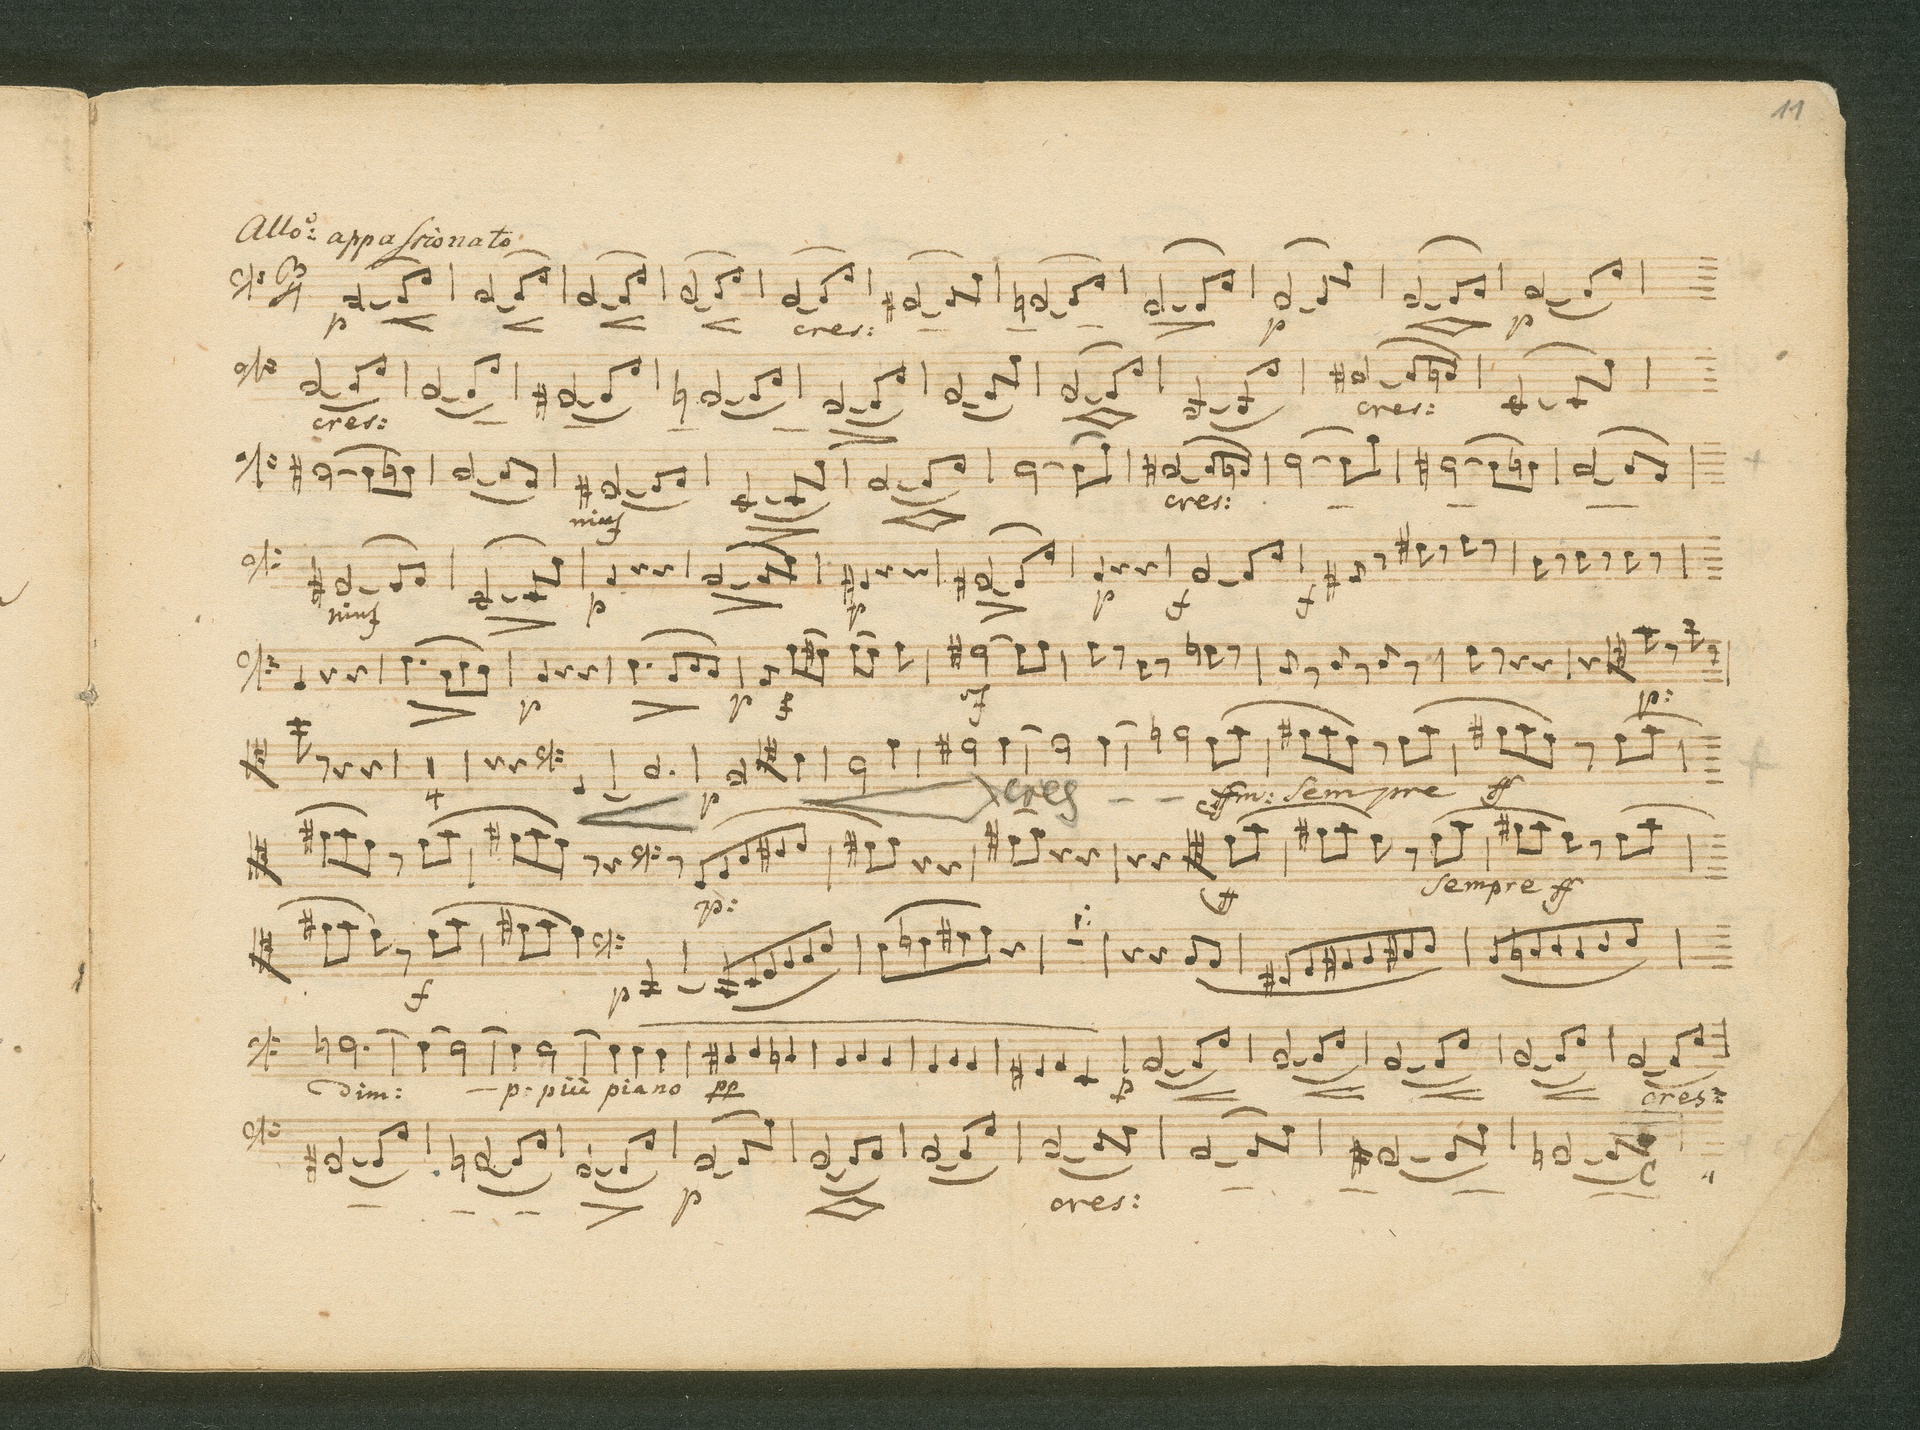 11
Allo: appassionato
3 4
p cres: p p
cres: cres:
cres:
p p p f f
p p sf p:
4 p cres sempre ff
p: sempre ff
f p
dim: p: più piano pp p cres:
p cres: